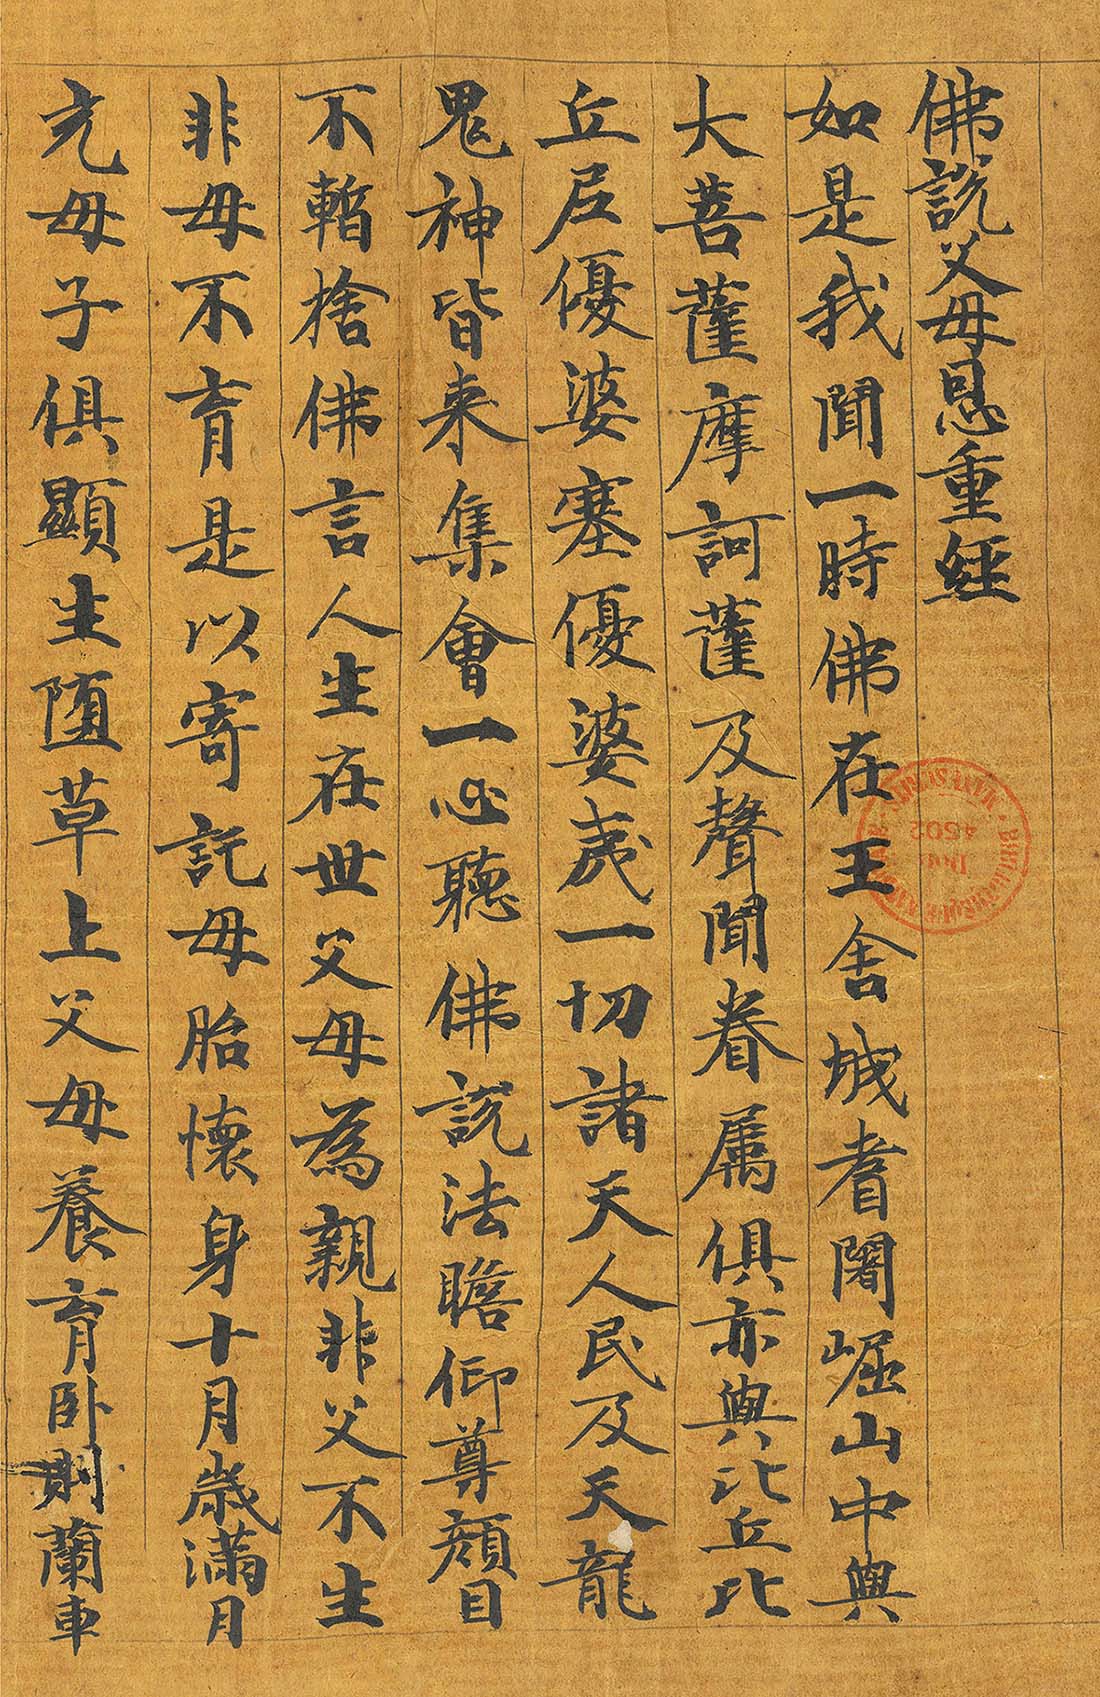 佛說父母恩重經
如是我聞一時佛在王舍城耆闍崛山中與
大菩薩摩訶薩及聲聞眷属俱亦與比丘比
丘尼優婆塞優婆夷一切諸天人民及天龍
鬼神皆来集會一心聽佛說法瞻仰尊顔目
不暫捨佛言人生在世父母為親非父不生
非母不育是以寄託母胎懷身十月歲滿月
充母子俱顯生随草上父母養育卧則蘭車
4502